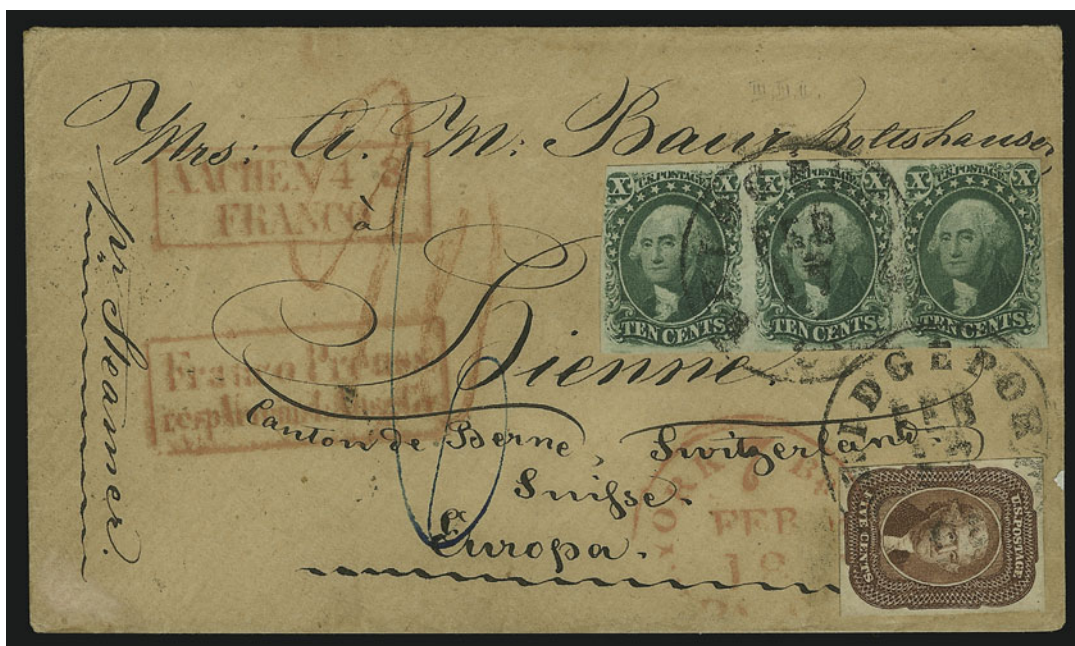 Mrs: A. M: Baur Boltshauser,
à
Bienne
Canton de Berne, Switzerland.
Suisse.
Europa.
pr Steamer.
AACHEN 4 3
FRANCO
Franco Preuss
résp.
X U.S. POSTAGE X
TEN CENTS
X U.S. POSTAGE X
TEN CENTS
X U.S. POSTAGE X
TEN CENTS
FEB
17
IDGEPOR
FEB
U.S. POSTAGE
FIVE CENTS
ORK
FEB